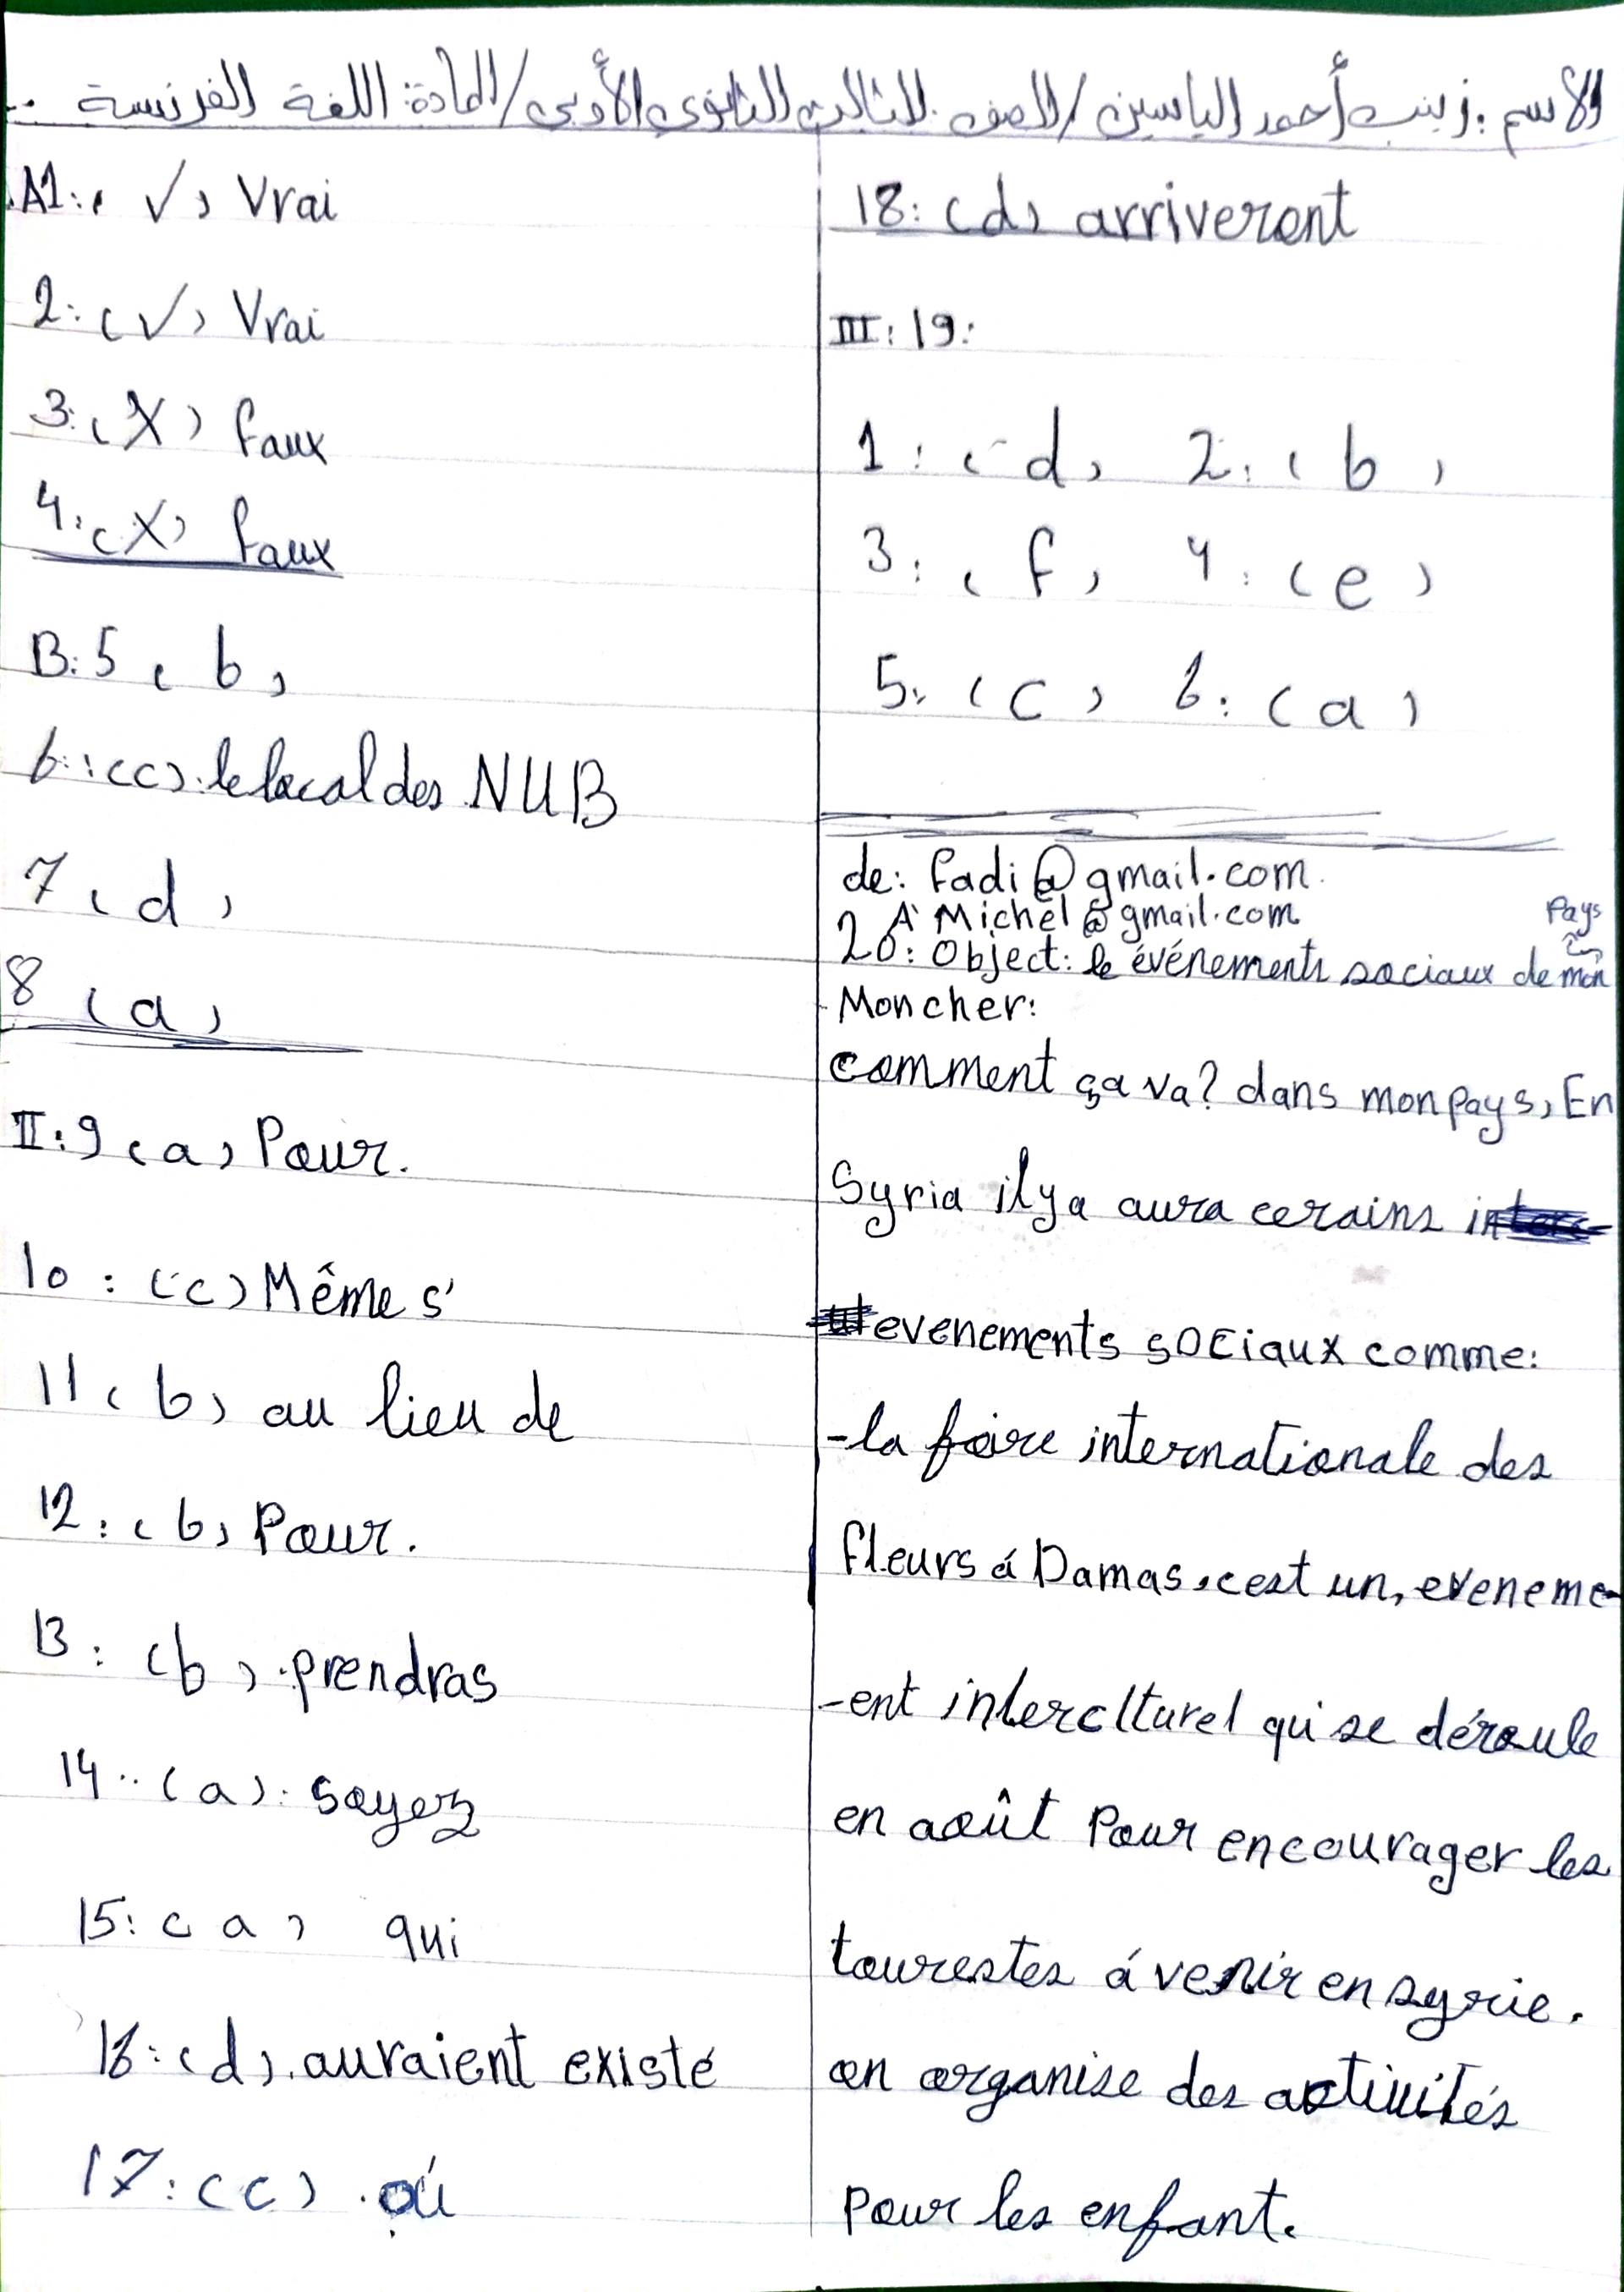 الاسم: زينب أحمد الياسين / الصف: الثالث الثانوي الأدبي / المادة: اللغة الفرنسية ..
A1: ( ✓ ) Vrai
2: ( ✓ ) Vrai
3: ( X ) Faux
4: ( X ) Faux
B: 5 ( b )
6: (c): le local des NUB
7 ( d )
8 ( a )
II: 9 ( a ) Pour.
10 : (c) Même s'
11 ( b ) au lieu de
12 : ( b ) Pour.
13 : ( b ) . prendras
14 : ( a ) : soyez
15 : ( a ) qui
16 : ( d ) . auraient existé
17 : ( c ) . où
18: ( d ) arriveront
III: 19:
1 : ( d ) 2 : ( b )
3 : ( f ) 4 : ( e )
5 : ( c ) 6 : ( a )
de: fadi@gmail.com.
A' Michel@gmail.com
20: Object: le événements sociaux de mon Pays
- Mon cher:
comment ça va? dans mon pays, En
Syria il y a aura cerains
evenements sociaux comme:
- la foire internationale des
fleurs á Damas. cest un, eveneme
-ent interclturel qui se déroule
en août Pour encourager les
tourestes á venir en syrie.
on organise des activités
Pour les enfant.